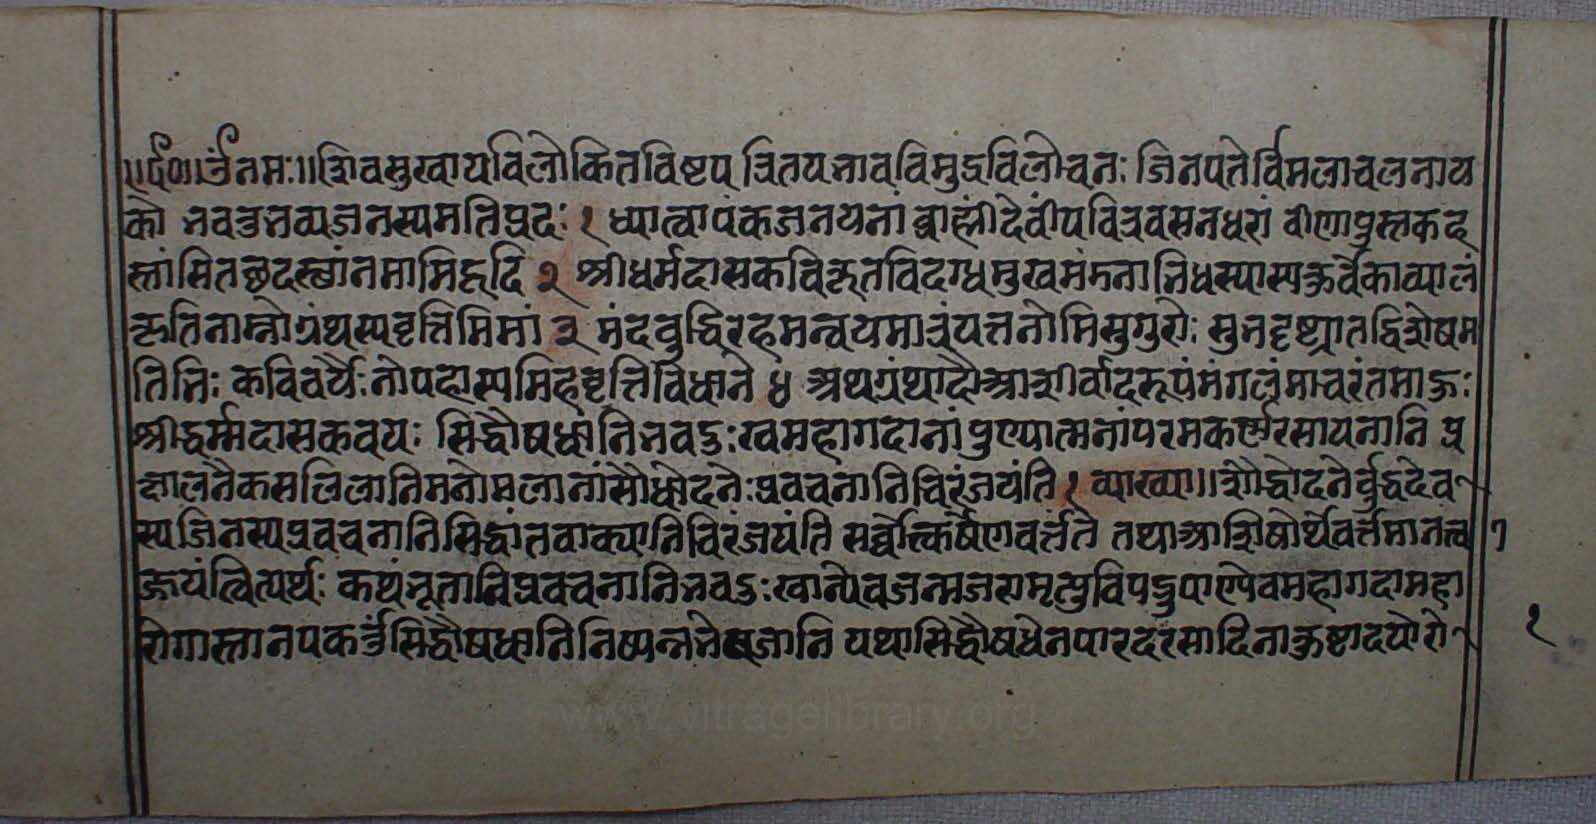 ॥ए६०॥उँनमः॥शिवसुखायविलोकितविष्टपत्रितयभावविमुद्रविलोचनः जिनपतेर्विमलाचलनाय
को भवतुभव्यजनस्यमतिप्रदः १ ध्यात्वापंकजनयनां ब्राह्मीं देवींपवित्रवसनधरां वीणापुस्तकह
स्तांसितछदस्छांनमामिहृदि २ श्रीधर्मदासकविकृतविदग्धमुखमंडनाभिधस्यास्यकुर्वेकाव्यालं
कृतिनाम्नोग्रंथस्यवृत्तिमिमां ३ मंदबुद्धिरहमन्वयमात्रंयत्तनोमिसुगुरोः सुभदृष्ट्यातद्विशेषम
तिभिः कविवर्यैःनोपहास्यमिहवृत्तिविधाने ४ अथग्रंथादौआशीर्वादरूपंमंगलंमाचरंतमाहुः
श्रीद्धर्म्मदासकवयः सिद्धौषधानिभवदुःखमहागदानां पुण्यात्मनांपरमकर्णरसायनानि प्र
क्षालनैकसलिलानिमनोमलानांसौधोदनेःप्रवचनानिचिरंजयंति १ व्याख्या॥शौद्धोदनेर्बुद्धदेव
स्यजिनस्यप्रवचनानिसिद्धांतवाक्यानिचिरंजयंति सर्व्वोत्कर्षेणवर्त्तते तथाआशिषोर्थेवर्त्तमानत्त्व
ज्जयंत्वित्यर्थः कथंभूतानिप्रवचनानिभवदुःखान्येवजन्मजरामृत्युविपद्रूपाण्येवमहागदामहा
रोगास्तानपकर्त्तुंसिद्धौषधानिनिष्पन्नभेषजानि यथासिद्धौषधेनपारदरसादिनाकुष्टादयोरो
१
www.vitragelibrary.org